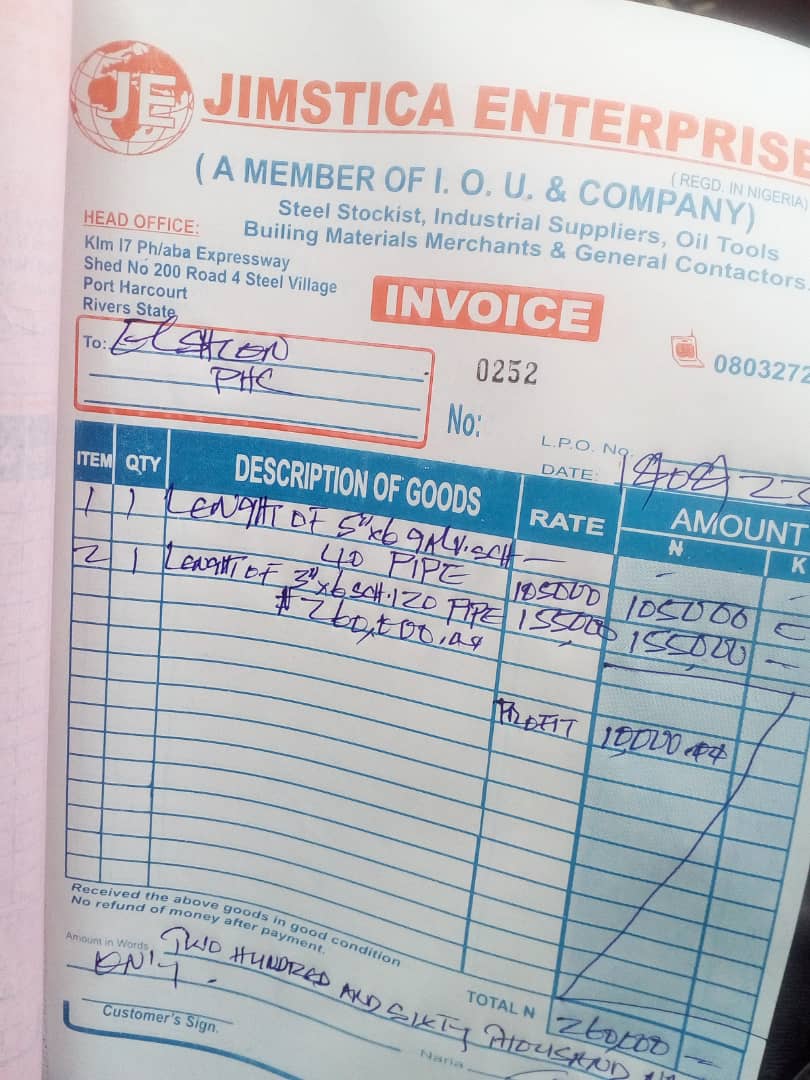 JE JIMSTICA ENTERPRISE
(REGD. IN NIGERIA)
( A MEMBER OF I. O. U. & COMPANY)
Steel Stockist, Industrial Suppliers, Oil Tools
Builing Materials Merchants & General Contactors.
HEAD OFFICE:
Klm I7 Ph/aba Expressway
Shed No 200 Road 4 Steel Village
Port Harcourt
Rivers State
INVOICE
0803272
To:
PHC
0252
No:
L.P.O. No.
DATE:
ITEM QTY DESCRIPTION OF GOODS RATE AMOUNT
₦ K
1 1 LENGHT OF 5"x6 GALV. SCH
40 PIPE 105000 105000
2 1 LENGHT OF 3"x6 SCH.120 PIPE 155000 155,000
₦260,000
PROFIT 10,000
Received the above goods in good condition
No refund of money after payment.
Amount in Words TWO HUNDRED AND SIXTY THOUSAND
ONLY.
TOTAL N 260,000
Customer's Sign.
Naria